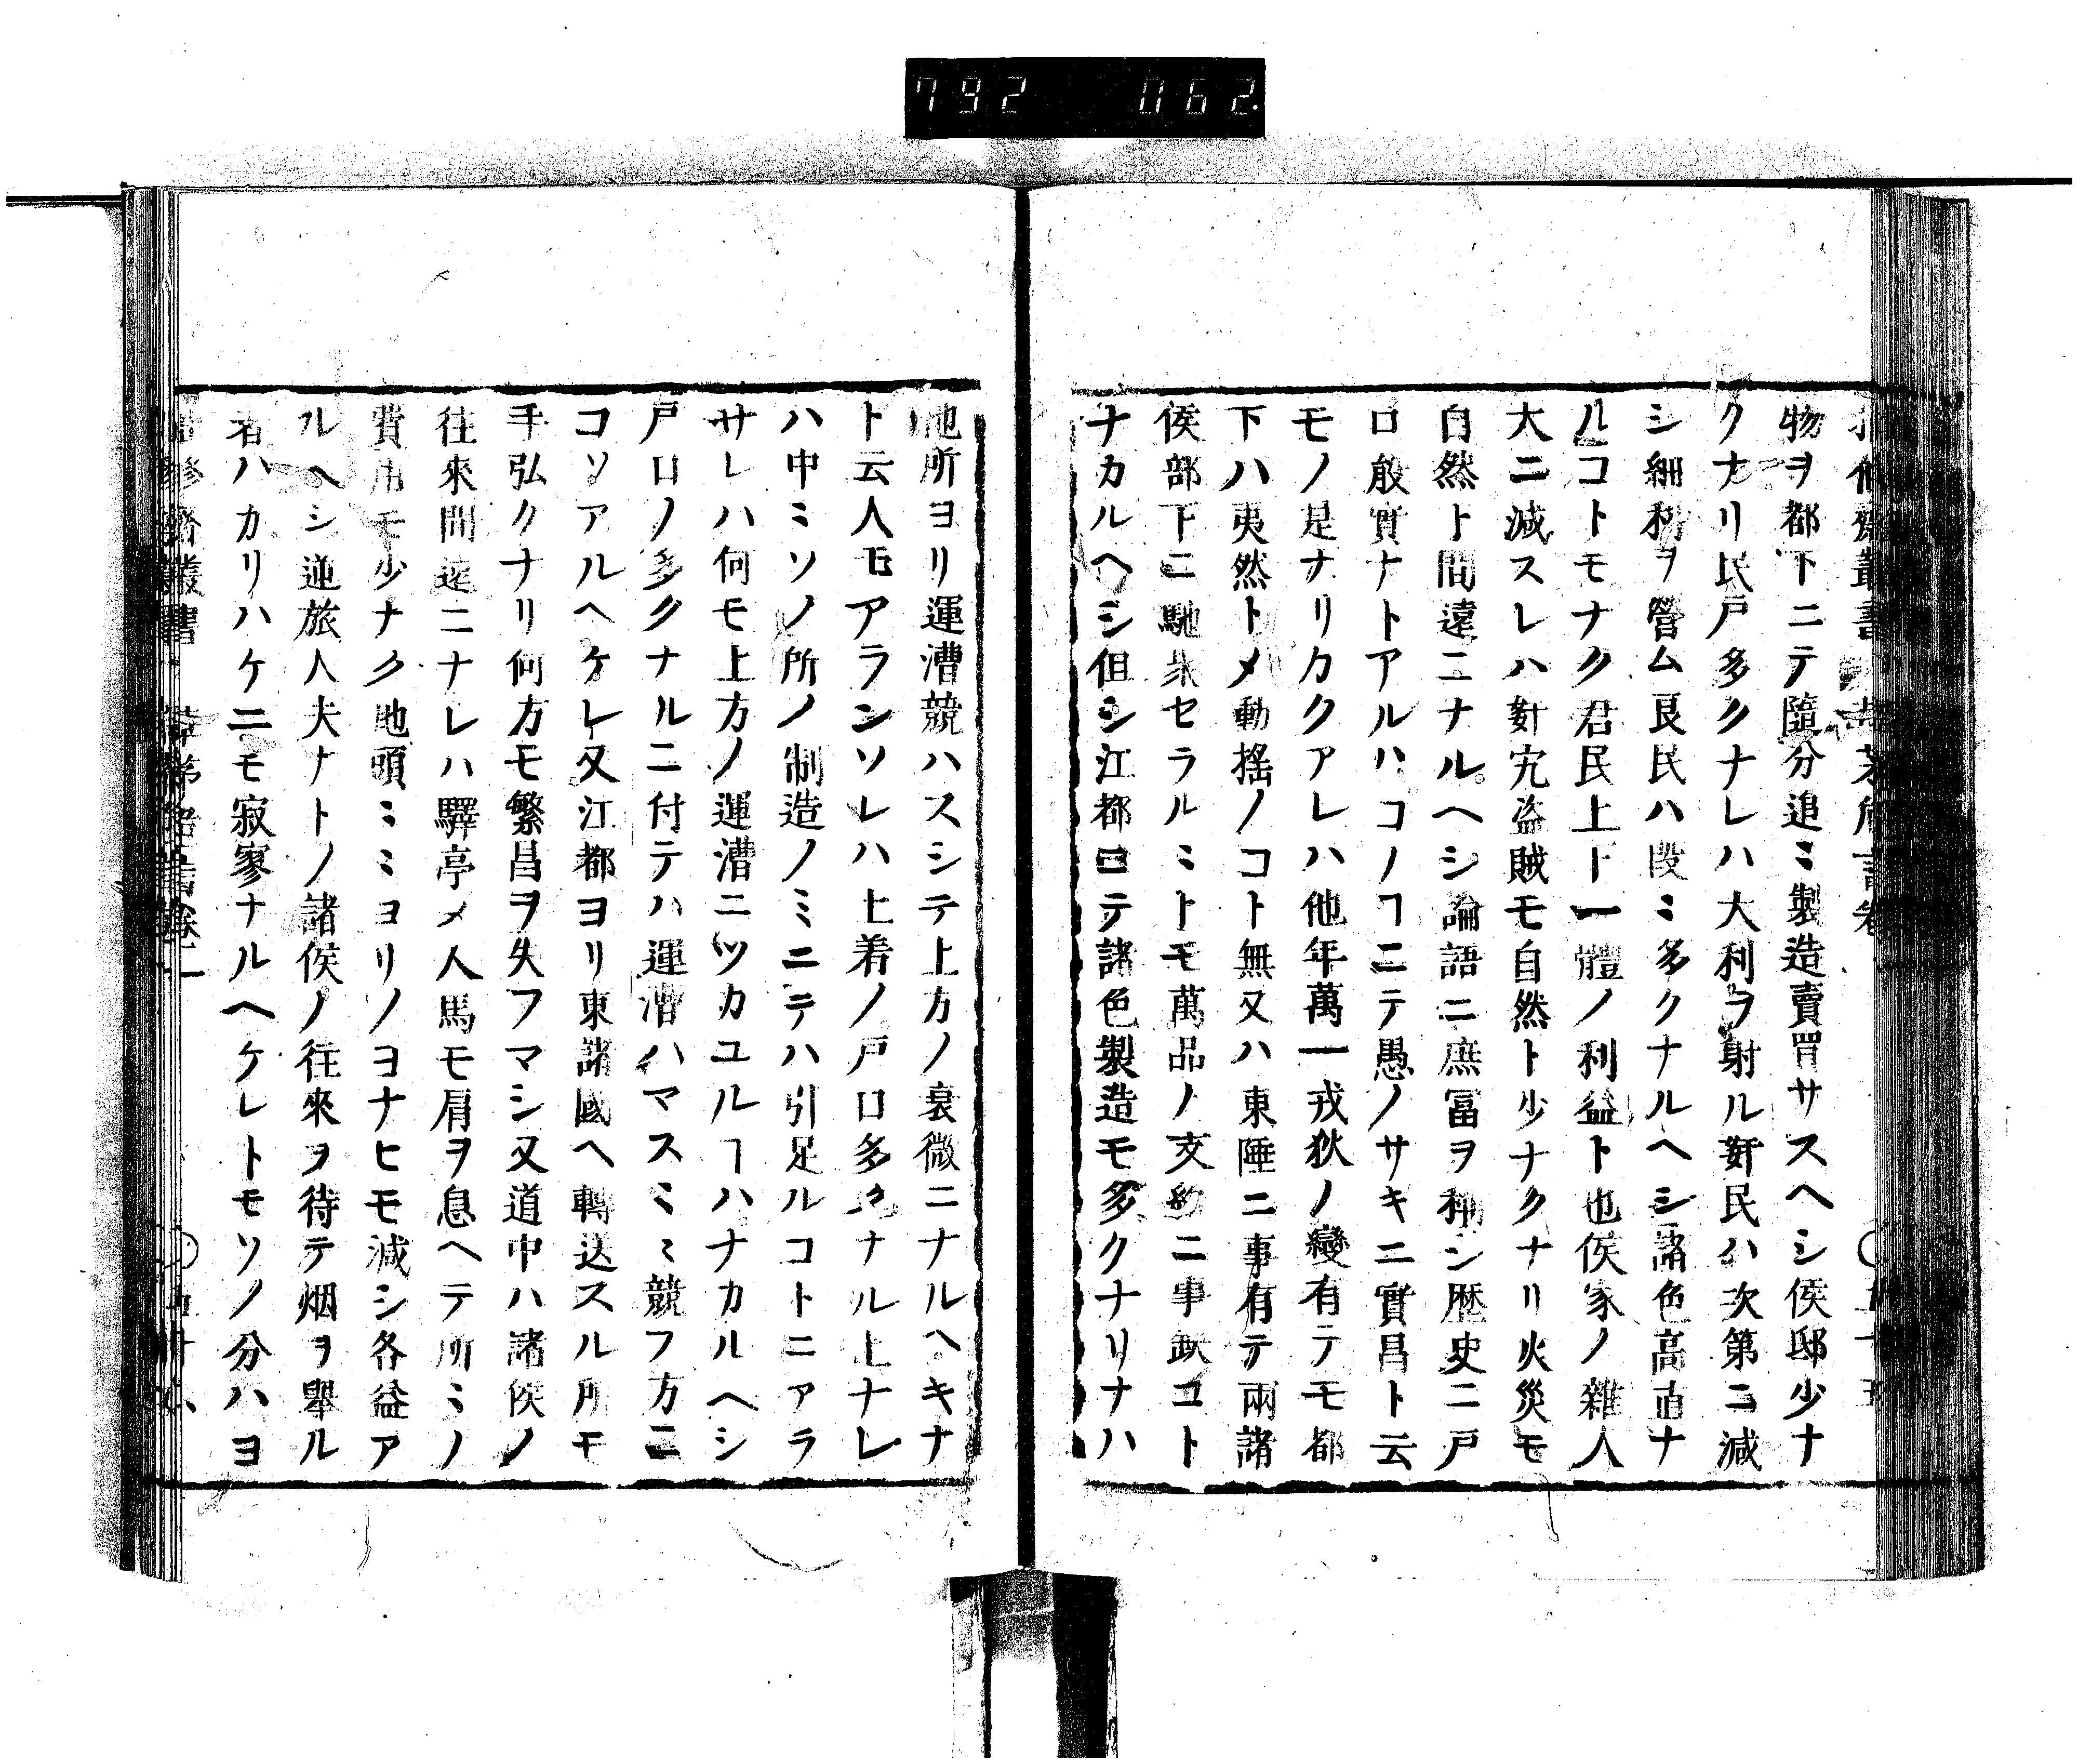 792 062
物ヲ都下ニテ隨分追ミ製造賣買サスヘシ侯邸少ナ
クナリ民戸多クナレハ大利ヲ射ル姧民ハ次第ニ減
シ細利ヲ營ム良民ハ段ミ多クナルヘシ諸色高直ナ
ルコトモナク君民上下一體ノ利益ト也侯家ノ雜人
大ニ減スレハ姧宄盗賊モ自然ト少ナクナリ火災モ
自然ト間遠ニナルヘシ論語ニ庶冨ヲ稱シ歴史ニ戸
口殷實ナトアルハコノヿニテ愚ノサキニ實昌ト云
モノ是ナリカクアレハ他年萬一戎狄ノ變有テモ都
下ハ夷然トメ動搖ノコト無又ハ東陲ニ事有テ兩諸
侯部下ニ馳衆セラルミトモ萬品ノ支約ニ事缺コト
ナカルヘシ但シ江都ヨテ諸色製造モ多クナリナハ
他所ヨリ運漕競ハスシテ上方ノ衰微ニナルヘキナ
ト云人モアランソレハ土着ノ戸口多クナル上ナレ
ハ中ミソノ所ノ制造ノミニテハ引足ルコトニアラ
サレハ何モ上方ノ運漕ニツカユルヿハナカルヘシ
戸口ノ多クナルニ付テハ運漕ハマスミミ競フ方ニ
コソアルヘケレ又江都ヨリ東諸國ヘ轉送スル所モ
手弘クナリ何方モ繁昌ヲ失フマシ又道中ハ諸侯ノ
往來間遠ニナレハ驛亭メ人馬モ肩ヲ息ヘテ所ミノ
費用モ少ナク地頭ミミヨリノヨナヒモ減シ各益ア
ルヘシ逆旅人夫ナトノ諸侯ノ往來ヲ待テ烟ヲ舉ル
者ハカリハケニモ寂寥ナルヘケレトモソノ分ハヨ